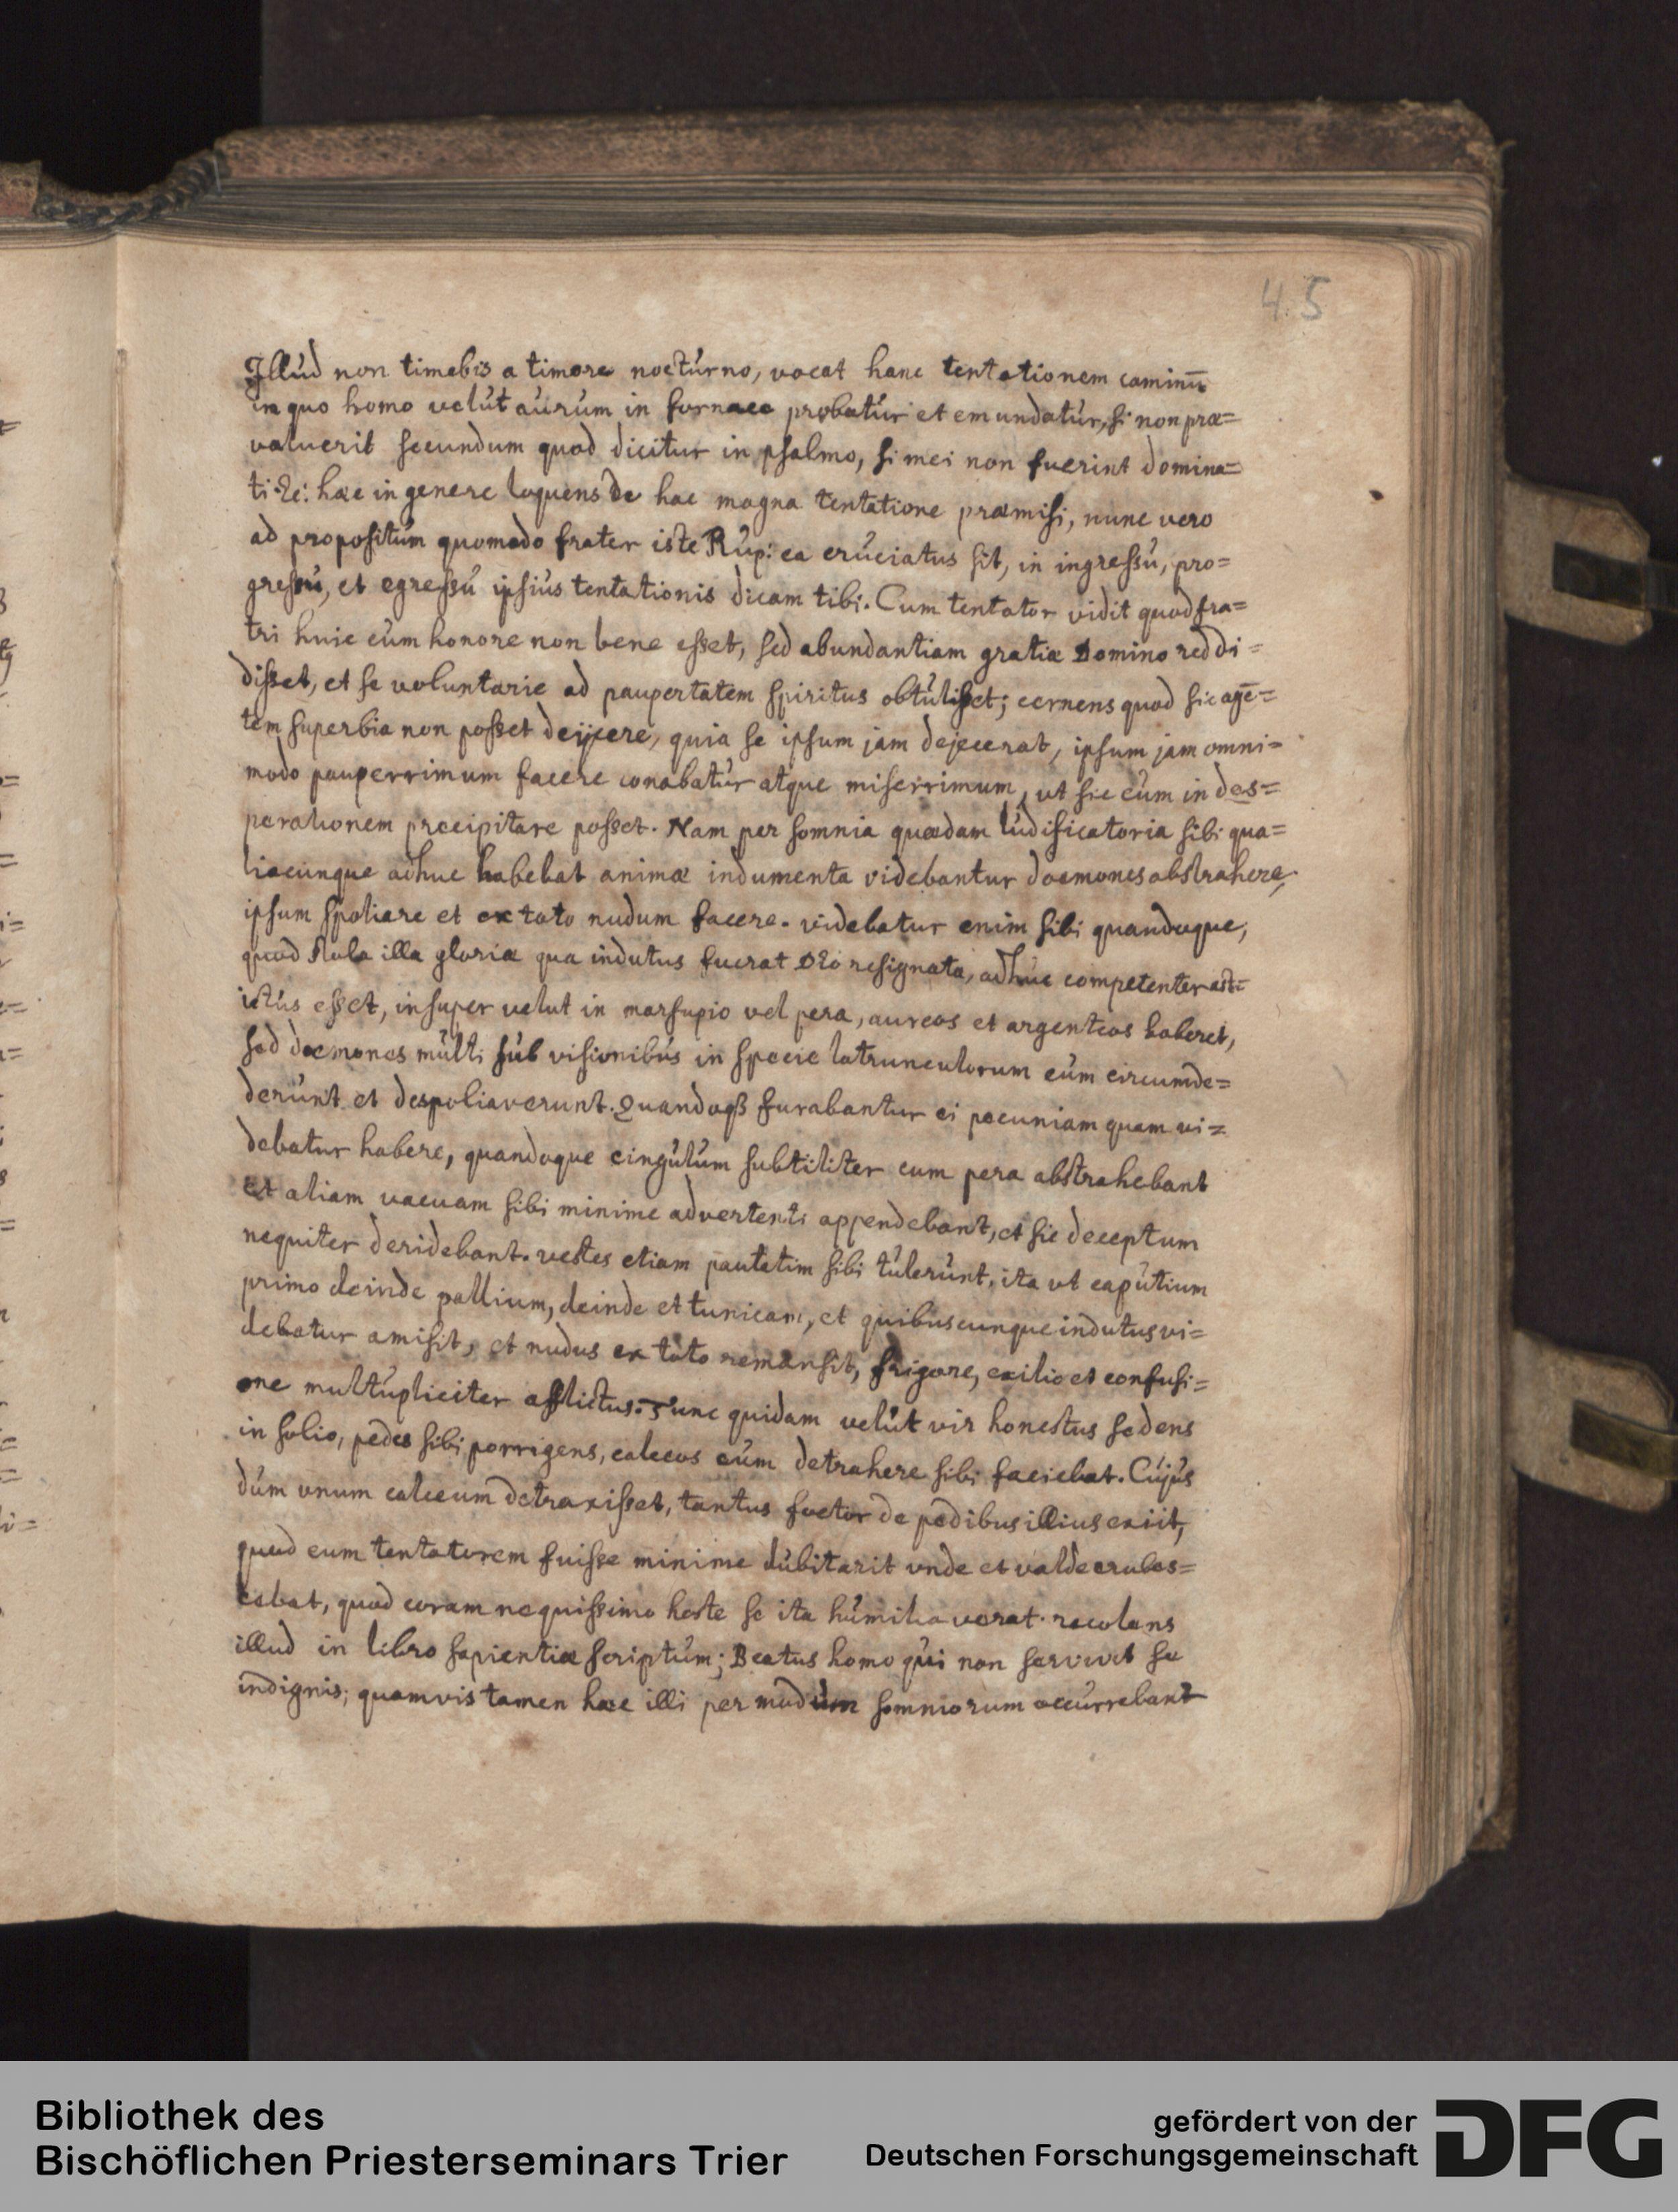 45
Illud non timebis a timore nocturno, vocat hanc tentationem caminū
in quo homo velut aurum in fornace probatur et emundatur, si non præ=
valuerit secundum quod dicitur in psalmo, si mei non fuerint domina=
ti &c: hæc in genere loquens de hac magna tentatione præmisi, nunc vero
ad propositum quomodo frater iste Rup: ea cruciatus sit, in ingressu, pro=
gressu, et egressu ipsius tentationis dicam tibi. Cum tentator vidit quod fra=
tri huic cum honore non bene esset, sed abundantiam gratiæ Domino reddi=
disset, et se voluntarie ad paupertatem spiritus obtulisset; cernens quod sic agē=
tem superbia non posset deijcere, quia se ipsum jam dejecerat, ipsum jam omni=
modo pauperrimum facere conabatur atque miserrimum, ut sic eum in des=
perationem præcipitare posset. Nam per somnia quædam ludificatoria sibi qua=
liacunque adhuc habebat animæ indumenta videbantur dæmones abstrahere,
ipsum spoliare et ex toto nudum facere. videbatur enim sibi quandoque,
quod stola illa gloriæ qua indutus fuerat Dño resignata, adhuc competenter
esset, insuper velut in marsupio vel pera, aureos et argenteos haberet,
sed dæmones multi sub visionibus in specie latrunculorum eum circumde=
derunt et despoliaverunt. Quandoqß furabantur ei pecuniam quam vi=
debatur habere, quandoque cingulum subtiliter cum pera abstrahebant
et aliam vacuam sibi minime advertenti appendebant, et sic deceptum
nequiter deridebant. vestes etiam pautatim sibi tulerunt, ita ut caputium
primo deinde pallium, deinde et tunicam, et quibuscunque indutus vi=
debatur amisit, et nudus ex toto remansit, frigore, exilio et confusi=
one multupliciter afflictus. Tunc quidam velut vir honestus sedens
in solio, pedes sibi porrigens, calceos eum detrahere sibi faciebat. Cujus
dum unum calceum detraxisset, tantus foetor de pedibus illius exiit,
quod eum tentatorem fuisse minime dubitarit unde et valde erubes=
cebat, quod coram nequissimo hoste se ita humiliaverat. recolens
illud in libro sapientiæ scriptum; Beatus homo qui non servivit se
indignis; quamvis tamen hæc illi per modum somniorum occurrebant
Bibliothek des
Bischöflichen Priesterseminars Trier
gefördert von der
Deutschen Forschungsgemeinschaft
DFG